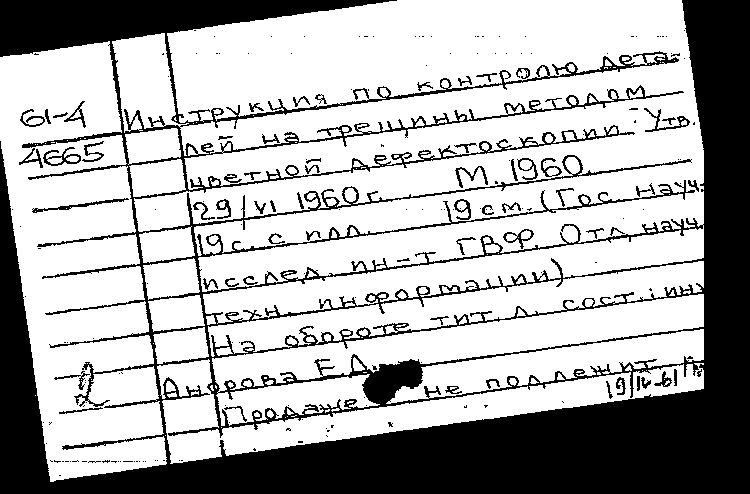 61-4
4665
Инструкция по контролю дета-
лей на трещины методом
цветной дефектоскопии. Утв.
29/VI 1960 г. М., 1960.
19 с. с илл. 19 см. (Гос. науч.-
исслед. ин-т ГВФ. Отд. науч.
техн. информации).
На обороте тит. л. сост.: инж
Анфрова Е.Д.
Продаже не подлежит
2
19/IV-61